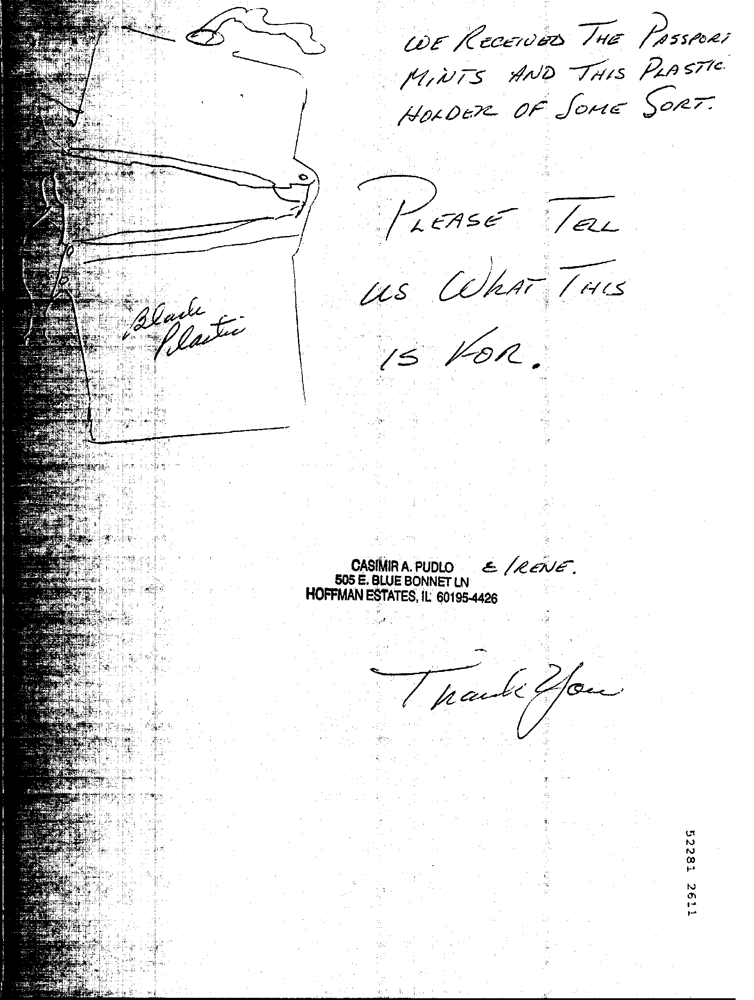 WE RECEIVED THE PASSPORT
MINTS AND THIS PLASTIC
HOLDER OF SOME SORT.
PLEASE TELL
US WHAT THIS
IS FOR.
Black
Plastic
CASIMIR A. PUDLO & IRENE.
505 E. BLUE BONNET LN
HOFFMAN ESTATES, IL 60195-4426
Thank You
52281 2611